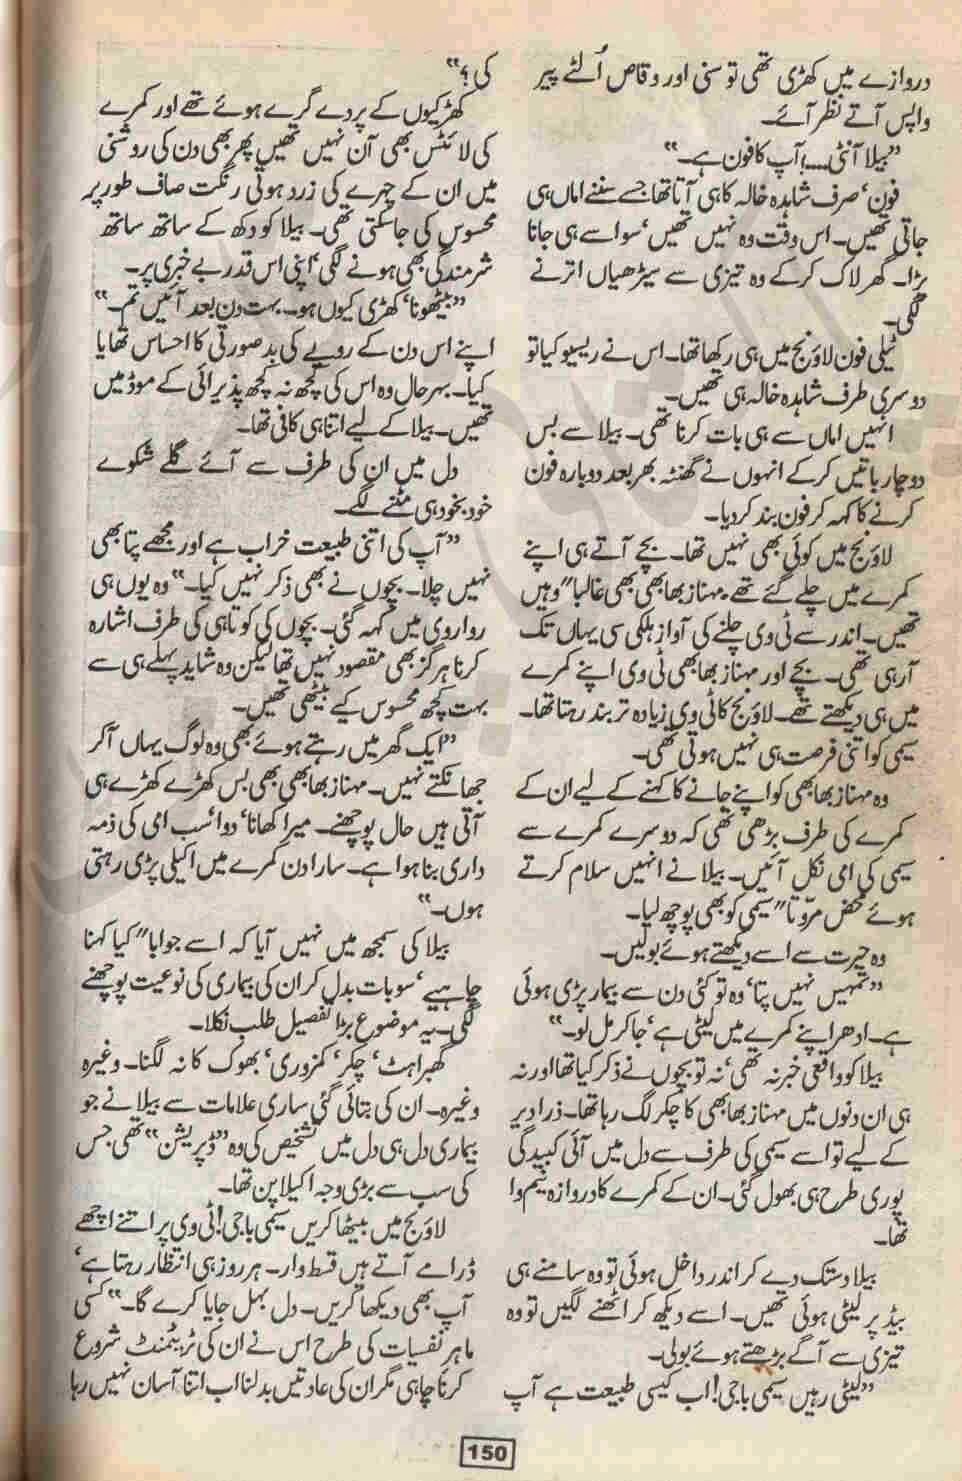 دروازے میں کھڑی تھی تو سنی اور وقاص اُلٹے پیر
واپس آتے نظر آئے۔
”بیلا آنٹی.....! آپ کا فون ہے۔“
فون‘ صرف شاہدہ خالہ کا ہی آتا تھا جسے سننے اماں ہی
جاتی تھیں۔ اس وقت وہ نہیں تھیں‘ سو اسے ہی جانا
پڑا۔ گھر لاک کر کے وہ تیزی سے سیڑھیاں اترنے
لگی۔
ٹیلی فون لاؤنج میں ہی رکھا تھا۔ اس نے ریسیو کیا تو
دوسری طرف شاہدہ خالہ ہی تھیں۔
انہیں اماں سے ہی بات کرنا تھی۔ بیلا سے بس
دوچار باتیں کر کے انہوں نے گھنٹہ بھر بعد دوبارہ فون
کرنے کا کہہ کر فون بند کر دیا۔
لاؤنج میں کوئی بھی نہیں تھا۔ بچے آتے ہی اپنے
کمرے میں چلے گئے تھے۔ مہناز بھابھی بھی غالبا” وہیں
تھیں۔ اندر سے ٹی وی چلنے کی آواز ہلکی سی یہاں تک
آ رہی تھی۔ بچے اور مہناز بھابھی ٹی وی اپنے کمرے
میں ہی دیکھتے تھے۔ لاؤنج کا ٹی وی زیادہ تر بند رہتا تھا۔
سیمی کو اتنی فرصت ہی نہیں ہوتی تھی۔
وہ مہناز بھابھی کو اپنے جانے کا کہنے کے لیے ان کے
کمرے کی طرف بڑھی تھی کہ دوسرے کمرے سے
سیمی کی امی نکل آئیں۔ بیلا نے انہیں سلام کرتے
ہوئے محض مروّتا” سیمی کو بھی پوچھ لیا۔
وہ حیرت سے اسے دیکھتے ہوئے بولیں۔
”تمہیں نہیں پتا‘ وہ تو کئی دن سے بیمار پڑی ہوئی
ہے۔ ادھر اپنے کمرے میں لیٹی ہے‘ جا کر مل لو۔“
بیلا کو واقعی خبر نہ تھی‘ نہ تو بچوں نے ذکر کیا تھا اور نہ
ہی ان دنوں میں مہناز بھابھی کا چکر لگ رہا تھا۔ ذرا دیر
کے لیے تو اسے سیمی کی طرف سے دل میں آئی کبیدگی
پوری طرح ہی بھول گئی۔ ان کے کمرے کا دروازہ نیم وا
تھا۔
بیلا دستک دے کر اندر داخل ہوئی تو وہ سامنے ہی
بیڈ پر لیٹی ہوئی تھیں۔ اسے دیکھ کر اٹھنے لگیں تو وہ
تیزی سے آگے بڑھتے ہوئے بولی۔
”لیٹی رہیں سیمی باجی! اب کیسی طبیعت ہے آپ
کی؟“
کھڑکیوں کے پردے گرے ہوئے تھے اور کمرے
کی لائٹس بھی آن نہیں تھیں پھر بھی دن کی روشنی
میں ان کے چہرے کی زرد ہوتی رنگت صاف طور پر
محسوس کی جا سکتی تھی۔ بیلا کو دکھ کے ساتھ ساتھ
شرمندگی بھی ہونے لگی‘ اپنی اس قدر بے خبری پر۔
”بیٹھو نا‘ کھڑی کیوں ہو۔ بہت دن بعد آئیں تم۔“
اپنے اس دن کے رویے کی بدصورتی کا احساس تھا یا
کیا۔ بہرحال وہ اس کی کچھ نہ کچھ پذیرائی کے موڈ میں
تھیں۔ بیلا کے لیے اتنا ہی کافی تھا۔
دل میں ان کی طرف سے آئے گلے شکوے
خودبخود ہی مٹنے لگے۔
”آپ کی اتنی طبیعت خراب ہے اور مجھے پتا بھی
نہیں چلا۔ بچوں نے بھی ذکر نہیں کیا۔“ وہ یوں ہی
رواروی میں کہہ گئی۔ بچوں کی کوتاہی کی طرف اشارہ
کرنا ہرگز بھی مقصود نہیں تھا لیکن وہ شاید پہلے ہی سے
بہت کچھ محسوس کیے بیٹھی تھیں۔
”ایک گھر میں رہتے ہوئے بھی وہ لوگ یہاں آ کر
جھانکتے نہیں۔ مہناز بھابھی بھی بس کھڑے کھڑے ہی
آتی ہیں حال پوچھنے۔ میرا کھانا‘ دوا‘ سب امی کی ذمہ
داری بنا ہوا ہے۔ سارا دن کمرے میں اکیلی پڑی رہتی
ہوں۔“
بیلا کی سمجھ میں نہیں آیا کہ اسے جوابا” کیا کہنا
چاہیے‘ سو بات بدل کر ان کی بیماری کی نوعیت پوچھنے
لگی۔ یہ موضوع بڑا تفصیل طلب نکلا۔
گھبراہٹ‘ چکر‘ کمزوری‘ بھوک کا نہ لگنا۔ وغیرہ
وغیرہ۔ ان کی بتائی گئی ساری علامات سے بیلا نے جو
بیماری دل ہی دل میں تشخیص کی وہ ”ڈپریشن“ تھی جس
کی سب سے بڑی وجہ اکیلا پن تھا۔
لاؤنج میں بیٹھا کریں سیمی باجی! ٹی وی پر اتنے اچھے
ڈرامے آتے ہیں قسط وار۔ ہر روز ہی انتظار رہتا ہے‘
آپ بھی دیکھا کریں۔ دل بہل جایا کرے گا۔“ کسی
ماہر نفسیات کی طرح اس نے ان کی ٹریٹمنٹ شروع
کرنا چاہی مگر ان کی عادتیں بدلنا اب اتنا آسان نہیں رہا
150